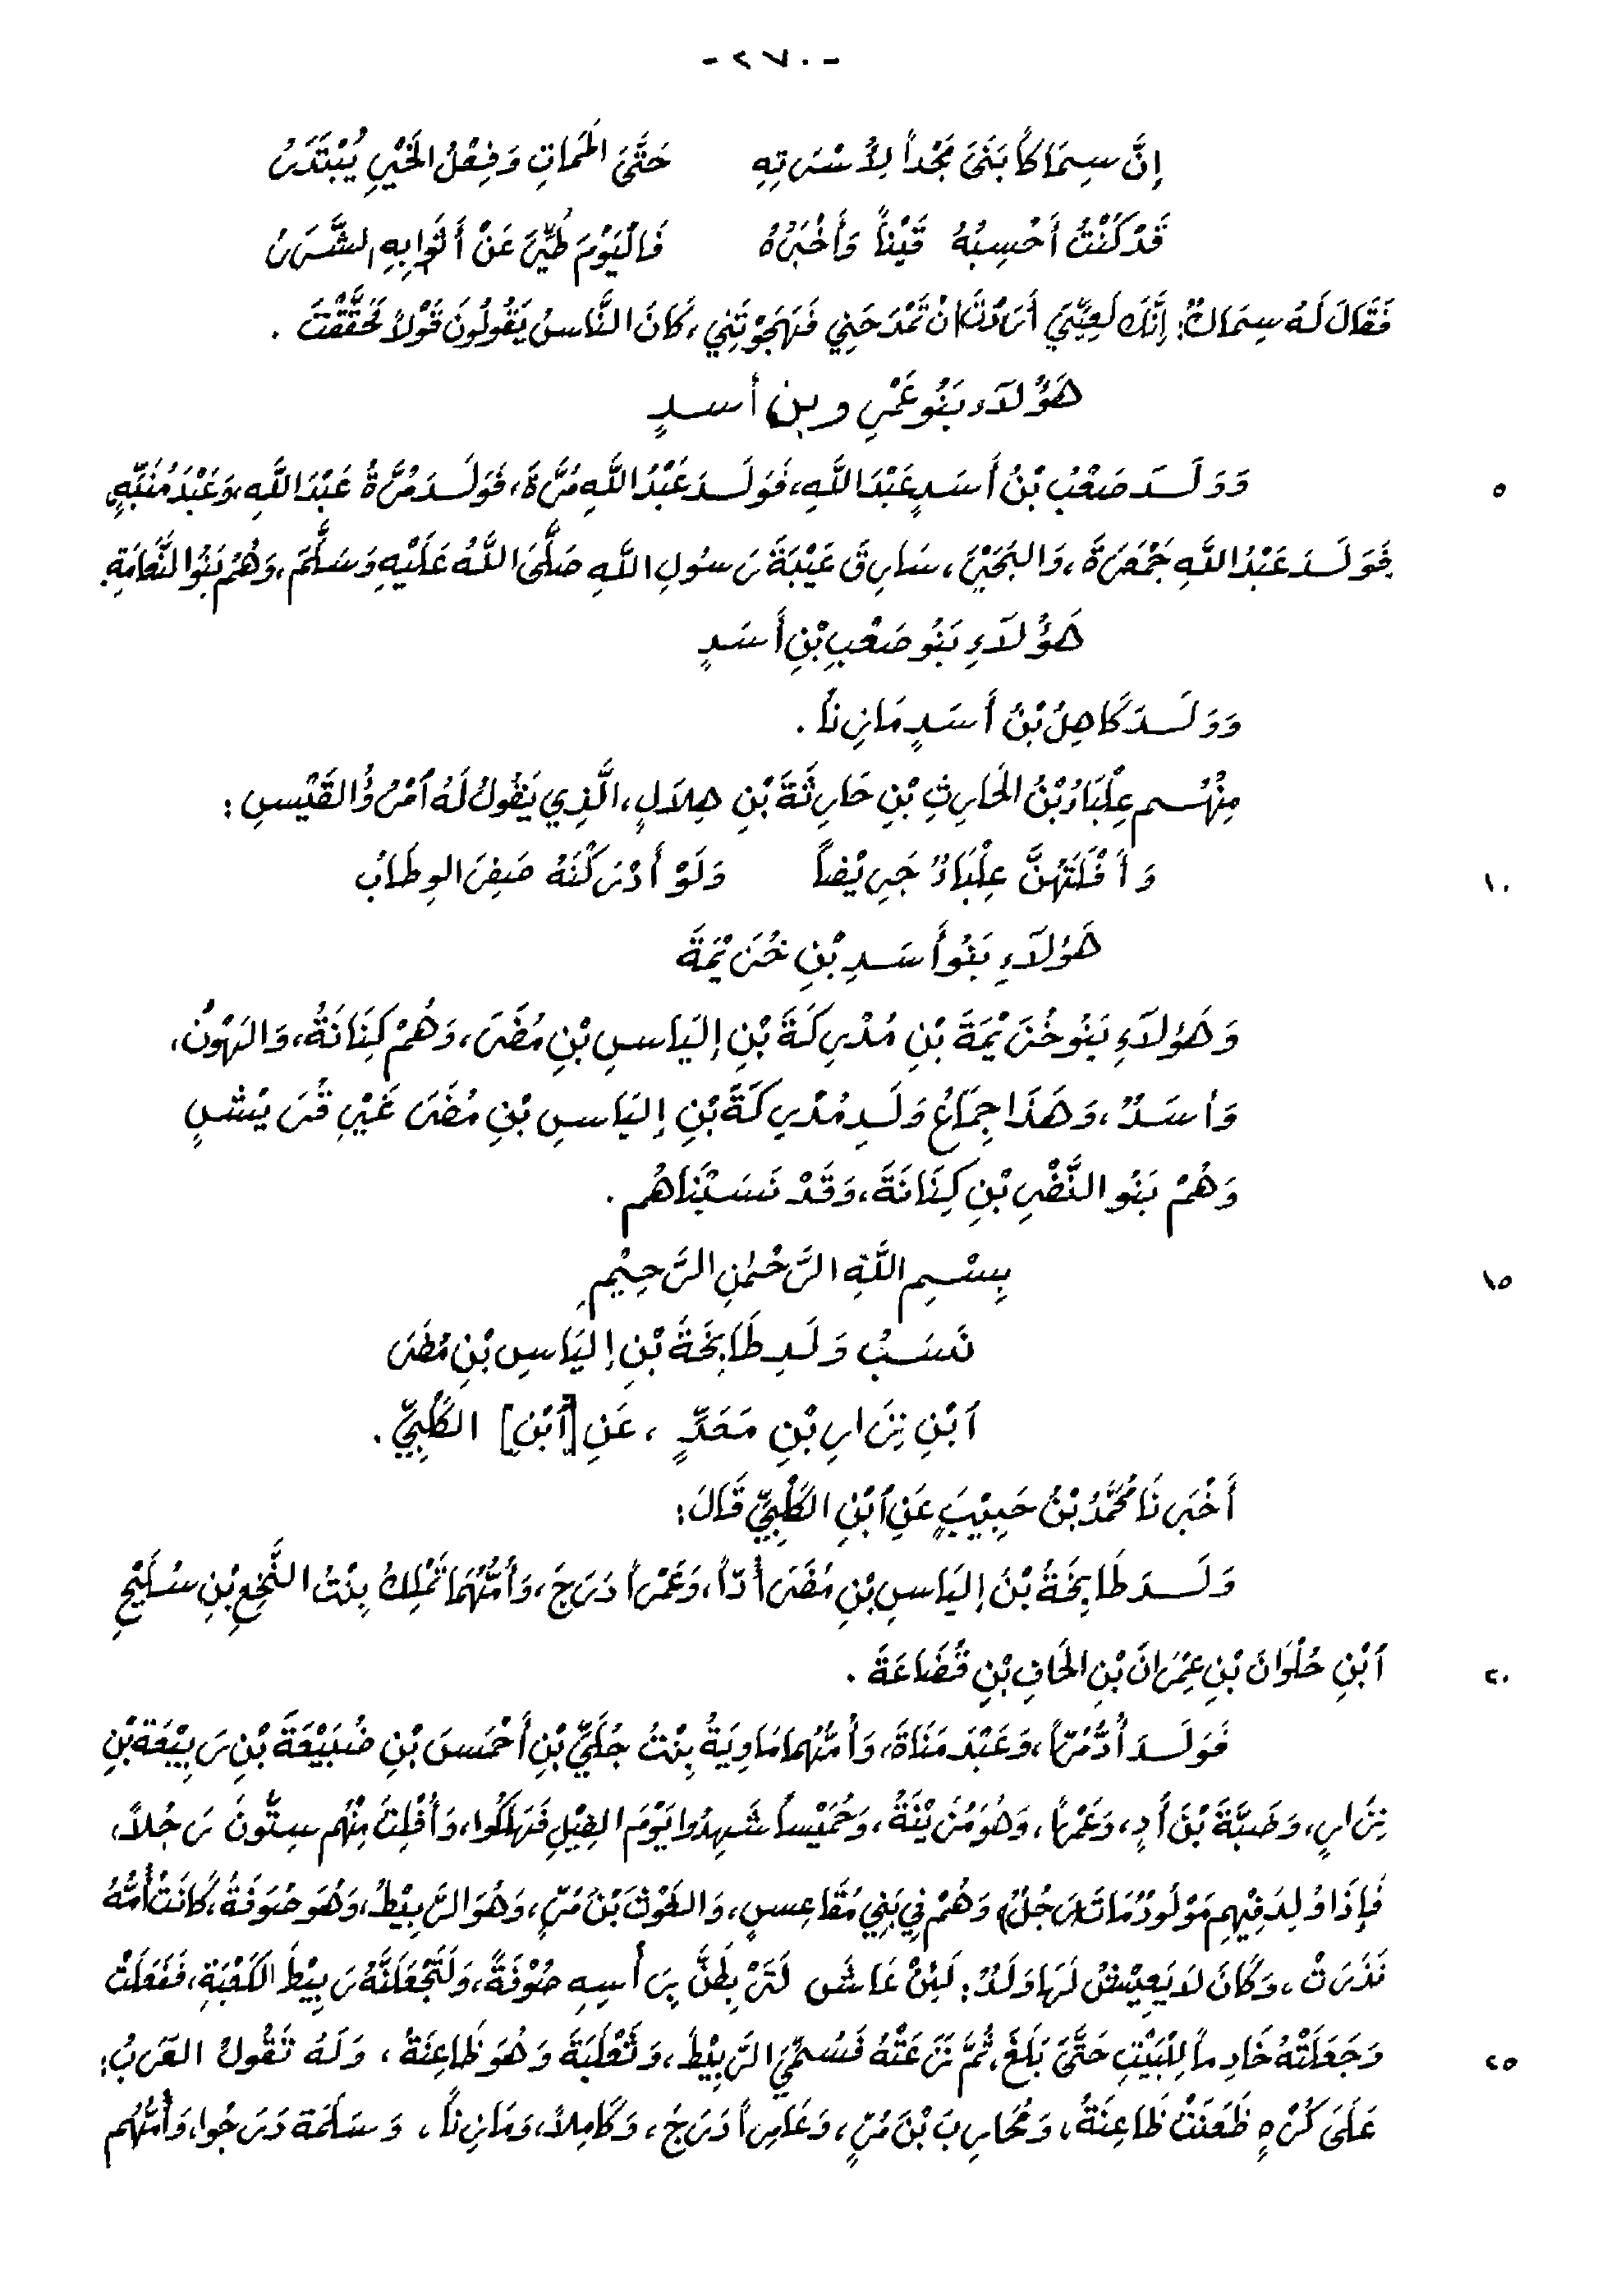 - ٢٧٠ -
إِنَّ سِمَاكاً بَنَى مَجْداً لِأُسْرَتِهِ حَتَّى المَمَاتِ وَفِعْلُ الخَيْرِ يُبْتَدَرُ
قَدْ كُنْتُ أَحْسِبُهُ قَيْناً وَأُخْبَرُهُ فَاليَوْمَ طُيِّرَ عَنْ أَثْوَابِهِ الشَّرَرُ
فَقَالَ لَهُ سِمَاكٌ: إِنَّكَ لَعَيِيٌّ أَرَدْتَ أَنْ تَمْدَحَنِي فَهَجَوْتَنِي، كَانَ النَّاسُ يَقُولُونَ قَوْلاً فَحَقَّقْتَ .
هَؤُلَاءِ بَنُو عَمْرِو بنِ أسدٍ
٥ وَوَلَدَ صَعْبُ بْنُ أَسَدٍ عَبْدَ اللَّهِ، فَوَلَدَ عَبْدُ اللَّهِ مُرَّةَ، فَوَلَدَ مُرَّةُ عَبْدَ اللَّهِ، وَعَبْدَ مُنَبِّهٍ،
فَوَلَدَ عَبْدُ اللَّهِ جَمْعَرَةَ، وَالبُجَيْرَ، سَارِقَ عَيْبَةَ رَسُولِ اللَّهِ صَلَّى اللَّهُ عَلَيْهِ وَسَلَّمَ، وَهُمْ بَنُو النَّعَامَةِ.
هَؤُلَاءِ بَنُو صَعْبِ بْنِ أَسَدٍ
وَوَلَدَ كَاهِلُ بْنُ أَسَدٍ مَازِناً .
مِنْهُم عِلْبَاءُ بْنُ الحَارِثِ بْنِ حَارِثَةَ بْنِ هِلَالٍ، الَّذِي يَقُولُ لَهُ ٱمْرُؤُ القَيْسِ :
١٠ وَأَفْلَتَهُنَّ عِلْبَاءٌ جَرِيْضاً وَلَوْ أَدْرَكْنَهُ صَفِرَ الوِطَابُ
هَؤُلَاءِ بَنُو أَسَدِ بْنِ خُزَيْمَةَ
وَهَؤُلَاءِ بَنُو خُزَيْمَةَ بْنِ مُدْرِكَةَ بْنِ إليَاسِ بْنِ مُضَرَ، وَهُمْ كِنَانَةُ، وَالهُوْنُ،
وَأسَدٌ، وَهَذَا جِمَاعُ وَلَدِ مُدْرِكَةَ بْنِ إليَاسِ بْنِ مُضَرَ غَيْرِ قُرَيْشٍ
وَهُمْ بَنُو النَّضْرِ بْنِ كِنَانَةَ، وَقَدْ نَسَبْنَاهُم .
١٥ بِسْمِ اللَّهِ الرَّحْمٰنِ الرَّحِيْمِ
نَسَبُ وَلَدِ طَابِخَةَ بْنِ إليَاسِ بْنِ مُضَرَ
ٱبْنِ نِزَارِ بْنِ مَعَدٍّ ، عَنِ [ٱبْنِ] الكَلْبِيِّ .
أَخْبَرَنَا مُحَمَّدُ بْنُ حَبِيْبَ عَنِ ٱبْنِ الكَلْبِيِّ قَالَ:
وَلَدَ طَابِخَةُ بْنُ إليَاسِ بْنِ مُضَرَ أُدّاً، وَعَمْراً دَرَجَ، وَأُمُّهُمَا تَمْلِكُ بِنْتُ النَّخَعِ بْنِ سُلَيْحِ
٢٠ ٱبْنِ حُلْوَانَ بْنِ عِمْرَانَ بْنِ الحَافِ بْنِ قُضَاعَةَ .
فَوَلَدَ أُدٌّ مُرّاً، وَعَبْدَ مَنَاةَ، وَأُمُّهُمَا مَاوِيَةُ بِنْتُ جُلَيِّ بْنِ أَحْمَسَ بْنِ ضُبَيْعَةَ بْنِ رَبِيْعَةَ بْنِ
نِزَارٍ، وَضَبَّةَ بْنَ أُدٍ، وَعَمْراً، وَهُوَ مُزَيْنَةُ، وَحُمَيْساً شَهِدُوا يَوْمَ الفِيْلِ فَهَلَكُوا، وَأُفْلِتَ مِنْهُم سِتُّونَ رَجُلاً،
فَإِذَا وُلِدَ فِيْهِم مَوْلُودٌ مَاتَ رَجُلٌ، وَهُمْ فِي بَنِي مُقَاعِسٍ، وَالغَوْثَ بْنَ مُرٍّ، وَهُوَ الرَّبِيْطُ، وَهُوَ صُوفَةُ، كَانَتْ أُمُّهُ
نَذَرَتْ، وَكَانَ لَا يَعِيْشُ لَهَا وَلَدٌ: لَئِنْ عَاشَ لَتَرْبِطَنَّ بِرَأْسِهِ صُوْفَةً، وَلَتَجْعَلَنَّهُ رَبِيْطَ الكَعْبَةِ، فَفَعَلَتْ
٢٥ وَجَعَلَتْهُ خَادِماً لِلْبَيْتِ حَتَّى بَلَغَ، ثُمَّ نَزَعَتْهُ فَسُمِّيَ الرَّبِيْطَ، وَثَعْلَبَةَ وَهُوَ ظَاعِنَةُ، وَلَهُ تَقُولُ العَرَبُ:
عَلَى كُرْهٍ ظَعَنَتْ ظَاعِنَةُ، وَمُحَارِبَ بْنَ مُرٍّ، وَعَامِراً دَرَجَ، وَكَامِلاً، وَمَازِناً، وَسَلَمَة دَرَجُوا، وَأُمُّهُم